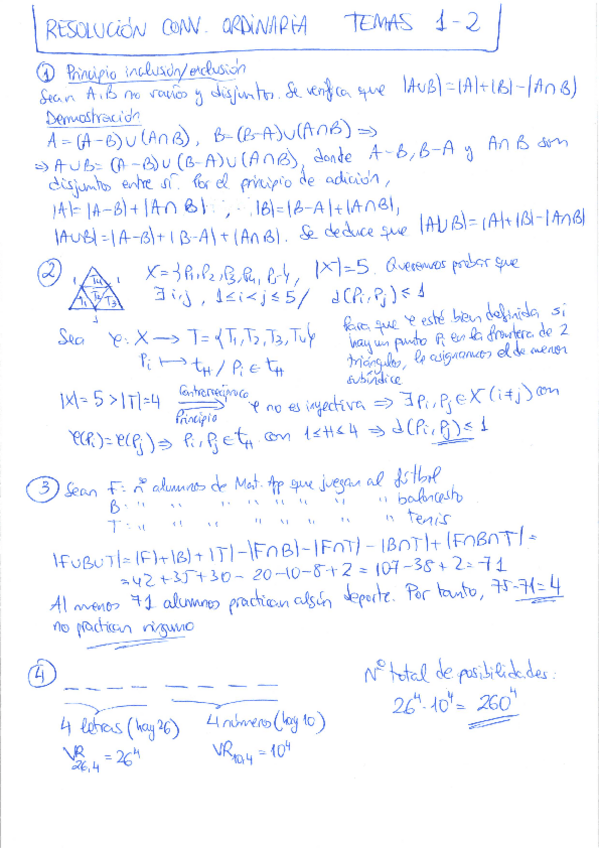 RESOLUCIÓN CONV. ORDINARIA TEMAS 1-2
① Principio inclusión/exclusión
Sean A,B no vacíos y disjuntos. Se verifica que |A∪B|=|A|+|B|-|A∩B|
Demostración
A=(A-B)∪(A∩B), B=(B-A)∪(A∩B) ⇒
⇒ A∪B=(A-B)∪(B-A)∪(A∩B), donde A-B, B-A y A∩B son
disjuntos entre sí. Por el principio de adición,
|A|=|A-B|+|A∩B|, |B|=|B-A|+|A∩B|,
|A∪B|=|A-B|+|B-A|+|A∩B|. Se deduce que |A∪B|=|A|+|B|-|A∩B|
② 1 1 1 T4 T1 T2 T3 X={P1,P2,P3,P4,P5}, |X|=5. Queremos probar que
∃ i,j, 1≤i<j≤5 / d(Pi,Pj)≤1
Sea φ: X → T={T1,T2,T3,T4}
Pi ↦ tH / Pi ∈ tH
Para que φ esté bien definida si
hay un punto Pi en la frontera de 2
triángulos, le asignamos el de menor
subíndice
|X|=5>|T|=4 ⇒ Contrarrecíproco Principio φ no es inyectiva ⇒ ∃Pi,Pj∈X (i≠j) con
φ(Pi)=φ(Pj) ⇒ Pi,Pj∈tH con 1≤H≤4 ⇒ d(Pi,Pj)≤1
③ Sean F: nº alumnos de Mat. App que juegan al fútbol
B: " " " " " " " baloncesto
T: " " " " " " " tenis
|F∪B∪T|=|F|+|B|+|T|-|F∩B|-|F∩T|-|B∩T|+|F∩B∩T|=
=42+35+30-20-10-8+2=107-38+2=71
Al menos 71 alumnos practican algún deporte. Por tanto, 75-71=4
no practican ninguno
④ _ _ _ _ _ _ _ _
4 letras (hay 26) 4 números (hay 10)
VR26,4=26⁴ VR10,4=10⁴
Nº total de posibilidades:
26⁴·10⁴=260⁴